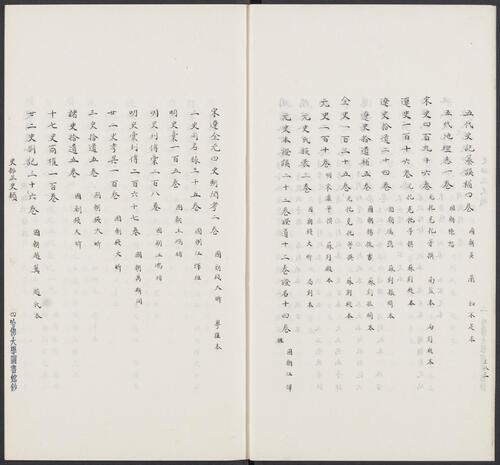 五代史記纂誤補四卷 國朝吳蘭 知不足本
五代地理志一卷 國朝
宋史四百九十六卷 元托克托等撰 南監本 內刻殿本
遼史一百十六卷 元托克托等撰 蘇刻殿本
遼史拾遺二十四卷 國朝厲鶚 蘇刻振綺本
遼史拾遺補五卷 國朝楊復吉 蘇刻振綺本
金史一百三十五卷 元托克托等撰 蘇刻殿本
元史二百十卷 明宋濂等撰 蘇刻殿本
元史氏族表三卷 國朝錢大昕 局刻本
元史本證 二十三卷證遺十三卷證名十四卷 國朝汪輝祖
宋遼金元四史朔閏考二卷 國朝錢大昕 粵雅本
二史同名錄三十五卷 國朝汪輝祖
明史藁一百五卷 國朝王鴻緒
明史列傳藁二百八卷 國朝王鴻緒
明史藁列傳二百六十七卷 國朝萬斯同
廿二史考異一百卷 國朝錢大昕
三史拾遺五卷 國朝錢大昕
諸史拾遺五卷 國朝錢大昕
十七史商榷一百卷
廿二史劄記三十六卷 國朝趙翼 趙氏本
史部正史類
四 哈佛大學圖書館鈔